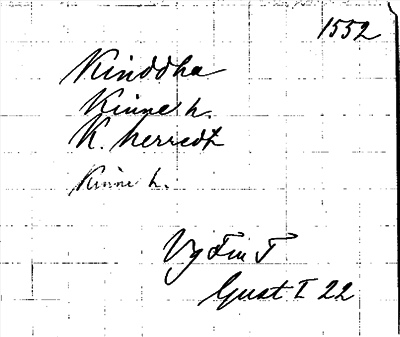 1552
Kinddha
Kinne h.
K. herredt
Kinne h.
Vg Fin T
Gust I 22